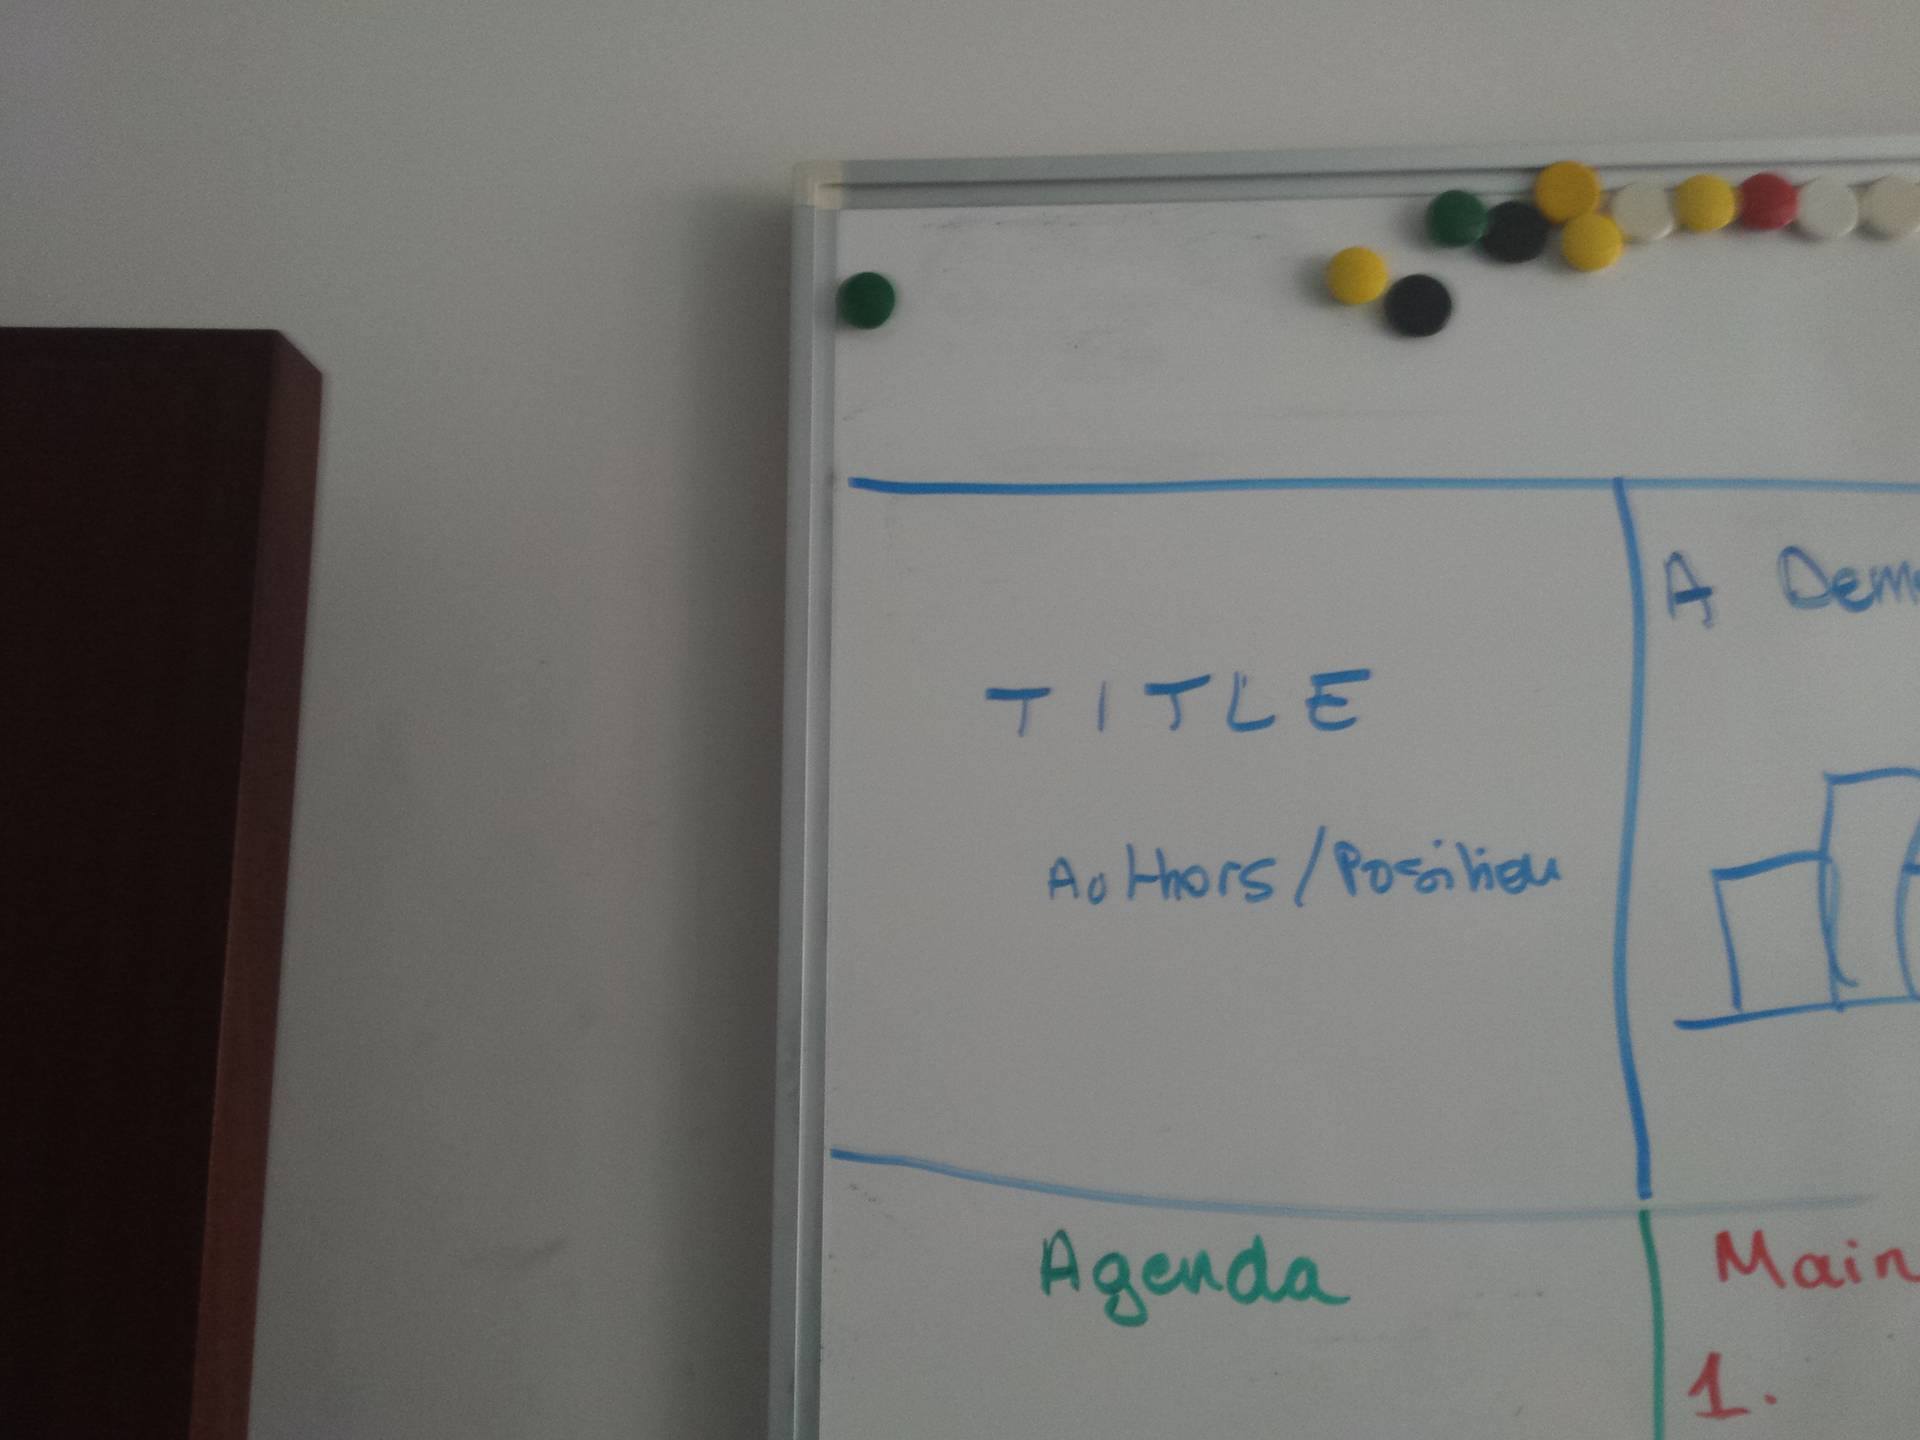 TITLE
Authors/Position
A Dem
Agenda
Main
1.